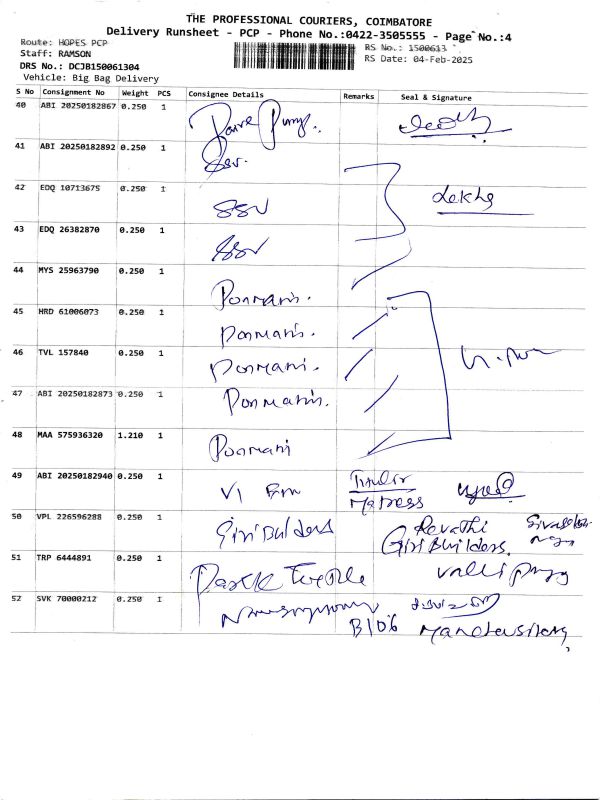 THE PROFESSIONAL COURIERS, COIMBATORE
Delivery Runsheet - PCP - Phone No.:0422-3505555 - Page No.:4
Route: HOPES PCP
RS No.: 1500613
Staff: RAMSON
RS Date: 04-Feb-2025
DRS No.: DCJB150061304
Vehicle: Big Bag Delivery
S No Consignment No Weight PCS Consignee Details Remarks Seal & Signature
40 ABI 20250182867 0.250 1
41 ABI 20250182892 0.250 1 SSV.
42 EDQ 10713675 0.250 1 SSV
lekha
43 EDQ 26382870 0.250 1 SSV
44 MYS 25963790 0.250 1 Ponmani.
45 HRD 61006073 0.250 1 Ponmani.
46 TVL 157840 0.250 1 Ponmani.
47 ABI 20250182873 0.250 1 Ponmani.
48 MAA 575936320 1.210 1 Ponmani
49 ABI 20250182940 0.250 1 VI
Matress
50 VPL 226596288 0.250 1 Giri Builders Revathi
Giri Builders.
51 TRP 6444891 0.250 1
52 SVK 70000212 0.250 1
B106